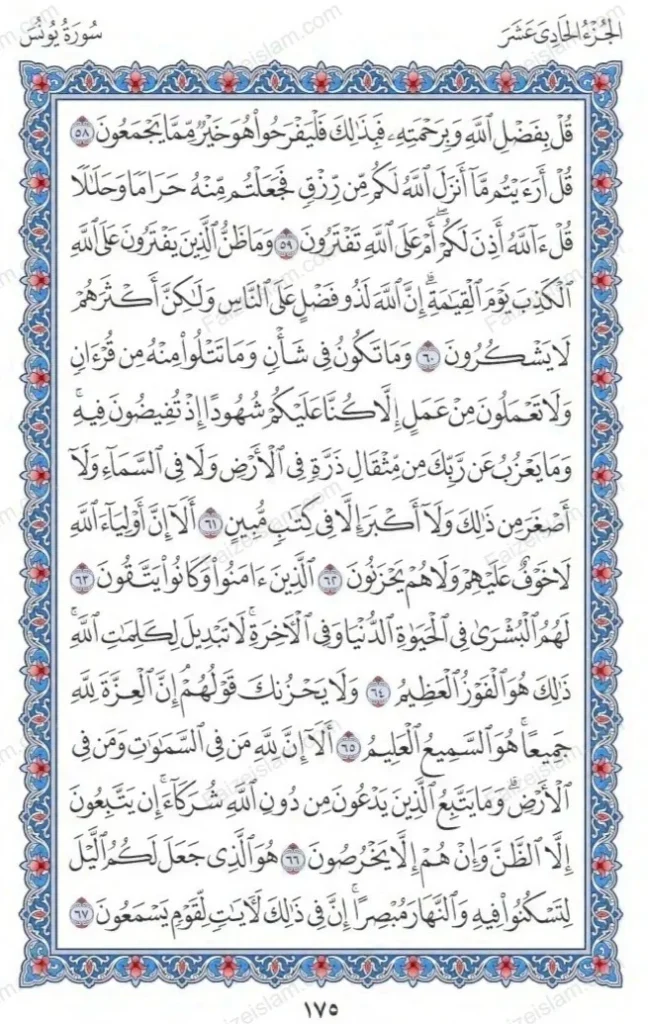 الجُزْءُ الحَادِىَ عَشَرَ
سُورَةُ يُونُسَ
قُلْ بِفَضْلِ ٱللَّهِ وَبِرَحْمَتِهِۦ فَبِذَٰلِكَ فَلْيَفْرَحُوا۟ هُوَ خَيْرٌ مِّمَّا يَجْمَعُونَ ٥٨
قُلْ أَرَءَيْتُم مَّآ أَنزَلَ ٱللَّهُ لَكُم مِّن رِّزْقٍ فَجَعَلْتُم مِّنْهُ حَرَامًا وَحَلَٰلًا
قُلْ ءَآللَّهُ أَذِنَ لَكُمْ ۖ أَمْ عَلَى ٱللَّهِ تَفْتَرُونَ ٥٩ وَمَا ظَنُّ ٱلَّذِينَ يَفْتَرُونَ عَلَى ٱللَّهِ
ٱلْكَذِبَ يَوْمَ ٱلْقِيَٰمَةِ ۗ إِنَّ ٱللَّهَ لَذُو فَضْلٍ عَلَى ٱلنَّاسِ وَلَٰكِنَّ أَكْثَرَهُمْ
لَا يَشْكُرُونَ ٦٠ وَمَا تَكُونُ فِى شَأْنٍ وَمَا تَتْلُوا۟ مِنْهُ مِن قُرْءَانٍ
وَلَا تَعْمَلُونَ مِنْ عَمَلٍ إِلَّا كُنَّا عَلَيْكُمْ شُهُودًا إِذْ تُفِيضُونَ فِيهِ ۚ
وَمَا يَعْزُبُ عَن رَّبِّكَ مِن مِّثْقَالِ ذَرَّةٍ فِى ٱلْأَرْضِ وَلَا فِى ٱلسَّمَآءِ وَلَآ
أَصْغَرَ مِن ذَٰلِكَ وَلَآ أَكْبَرَ إِلَّا فِى كِتَٰبٍ مُّبِينٍ ٦١ أَلَآ إِنَّ أَوْلِيَآءَ ٱللَّهِ
لَا خَوْفٌ عَلَيْهِمْ وَلَا هُمْ يَحْزَنُونَ ٦٢ ٱلَّذِينَ ءَامَنُوا۟ وَكَانُوا۟ يَتَّقُونَ ٦٣
لَهُمُ ٱلْبُشْرَىٰ فِى ٱلْحَيَوٰةِ ٱلدُّنْيَا وَفِى ٱلْءَاخِرَةِ ۚ لَا تَبْدِيلَ لِكَلِمَٰتِ ٱللَّهِ ۚ
ذَٰلِكَ هُوَ ٱلْفَوْزُ ٱلْعَظِيمُ ٦٤ وَلَا يَحْزُنكَ قَوْلُهُمْ ۘ إِنَّ ٱلْعِزَّةَ لِلَّهِ
جَمِيعًا ۚ هُوَ ٱلسَّمِيعُ ٱلْعَلِيمُ ٦٥ أَلَآ إِنَّ لِلَّهِ مَن فِى ٱلسَّمَٰوَٰتِ وَمَن فِى
ٱلْأَرْضِ ۗ وَمَا يَتَّبِعُ ٱلَّذِينَ يَدْعُونَ مِن دُونِ ٱللَّهِ شُرَكَآءَ ۚ إِن يَتَّبِعُونَ
إِلَّا ٱلظَّنَّ وَإِنْ هُمْ إِلَّا يَخْرُصُونَ ٦٦ هُوَ ٱلَّذِى جَعَلَ لَكُمُ ٱلَّيْلَ
لِتَسْكُنُوا۟ فِيهِ وَٱلنَّهَارَ مُبْصِرًا ۚ إِنَّ فِى ذَٰلِكَ لَءَايَٰتٍ لِّقَوْمٍ يَسْمَعُونَ ٦٧
١٧٥
Faizeislam.com